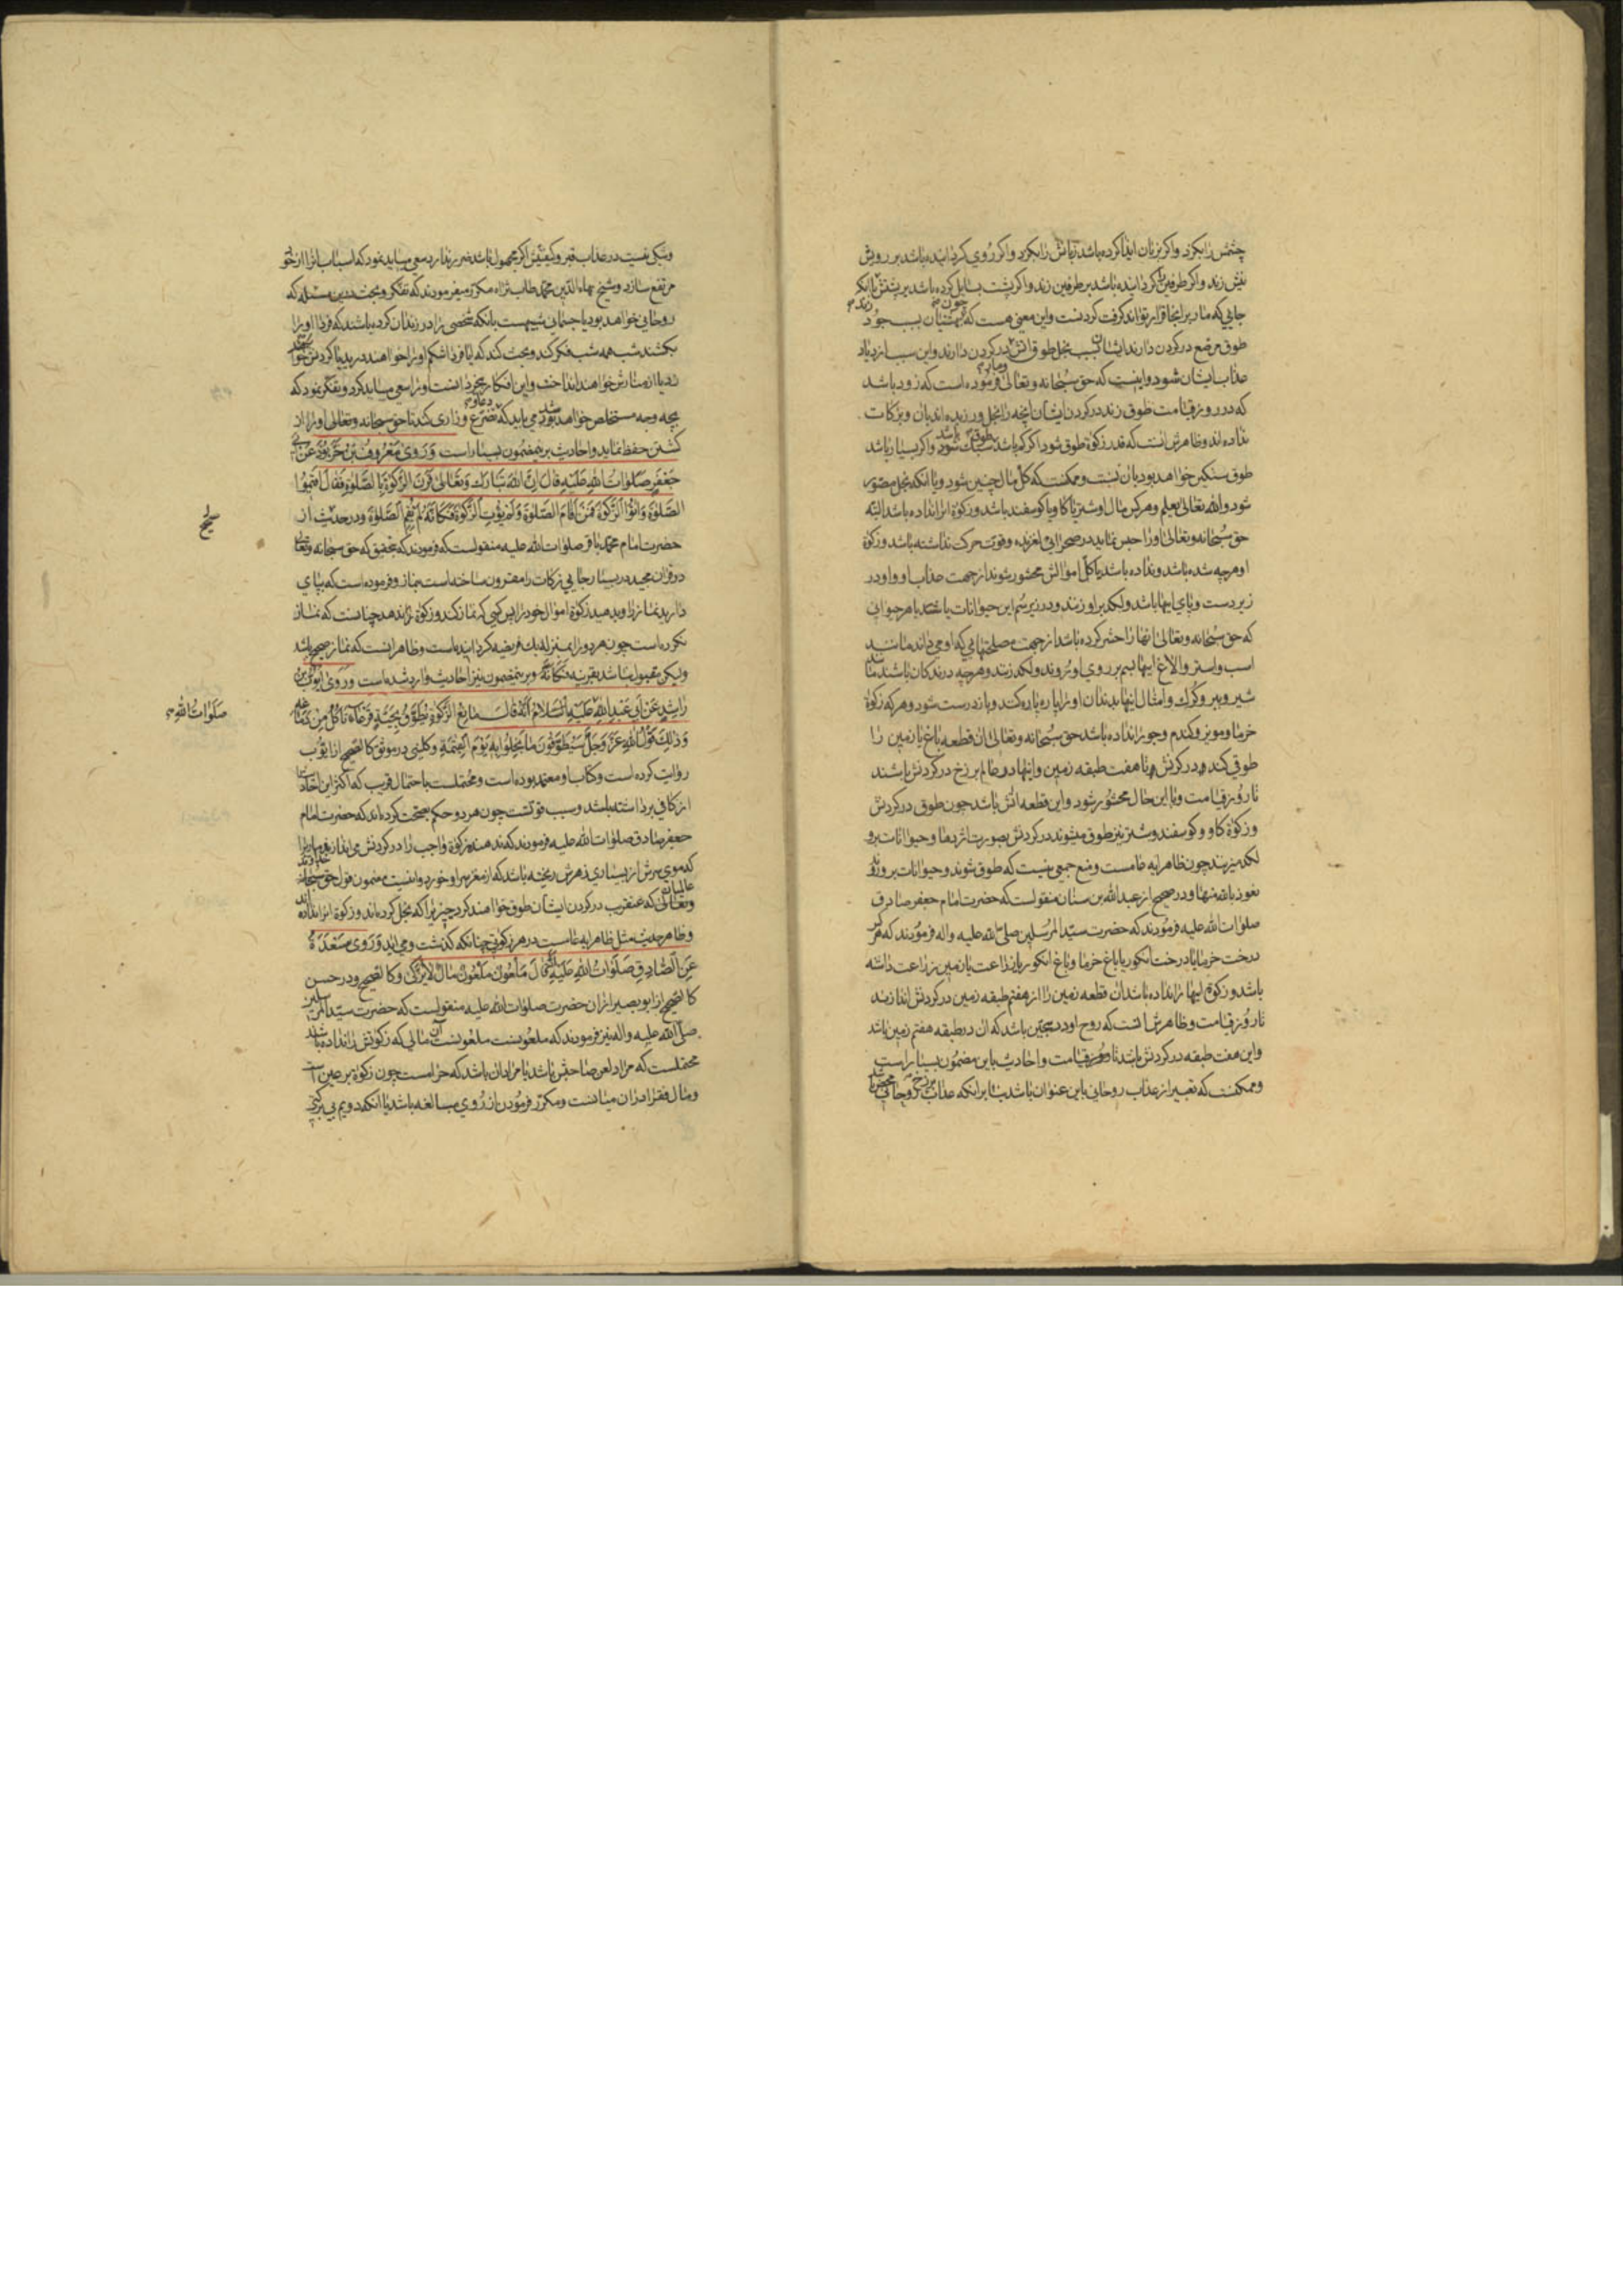 چشمش را بگزد و اگر بزبان ایذا کرده باشد زبانش را بگزد و اگر روی گردانیده باشد بر رویش
نیش زند و اگر طرفین گردانیده باشد بر طرفین زند و اگر پشت بسایل کرده باشد بر پشتش یا آنکه
جایی که مار بر آنجا قرار تواند گرفت گردنست و این معنی هست که چون بهشتیان بسبب جود
طوق مرصع در گردن دارند ایشان بسبب بخل طوق آتش در گردن دارند و این سبب ازدیاد
عذاب ایشان شود و اینست که حق سبحانه و تعالی فرموده است که زود باشد
که در روز قیامت طوق زند در گردن ایشان آنچه را بخل ورزیده‌اند بآن و زکات
نداده‌اند و ظاهرش آنست که قدر زکوة طوق شود اگر کم باشد طوقی سبک باشد و اگر بسیار باشد
طوق سنگین خواهد بود بآن نسبت و ممکنست که کل مال چنین شود و یا آنکه بخل مصور
شود و الله تعالی یعلم و هر کس مال او شتر یا گاو یا گوسفند باشد و زکوة آنرا نداده باشد البته
حق سبحانه و تعالی او را حبس نماید در صحرایی لغزنده و قوت حرکت نداشته باشد و زکوة
او هرچه شده باشد و نداده باشد یا کل اموالش محشور شوند از جهت عذاب او و او در
زیر دست و پای اینها باشد و لگد بر او زنند و در زیر سم این حیوانات باشد با هر حیوانی
که حق سبحانه و تعالی آنها را حشر کرده باشد از جهت مصلحتهایی که او می داند مانند
اسب و استر و الاغ اینها بسم بر روی او روند و لگد زنند و هرچه درندگان باشند مانند
شیر و ببر و گرک و امثال اینها بدندان او را پاره پاره کنند و باز درست شود و هر که زکوة
خرما و مویز و گندم و جو را نداده باشد حق سبحانه و تعالی آن قطعه باغ یا زمین را
طوقی کند و در گردنش تا هفت طبقه زمین و اینها در عالم برزخ در گردنش باشند
تا روز قیامت و با این حال محشور شود و این قطعه آتش باشد چون طوق در گردنش
و زکوة گاو و گوسفند و شتر نیز طوق میشوند در گردنش بصورت اژدها و حیوانات برو
لگد میزنند چون ظاهر آیه عامست و منع جمعی نیست که طوق شوند و حیوانات برو روند
نعوذ بالله منها و در صحیح از عبدالله بن سنان منقولست که حضرت امام جعفر صادق
صلوات الله علیه فرمودند که حضرت سید المرسلین صلی الله علیه و آله فرمودند که هر که
درخت خرما یا درخت انگور یا باغ خرما و باغ انگور یا زراعت یا زمین زراعت داشته
باشد و زکوة اینها را نداده باشد آن قطعه زمین را از هفتم طبقه زمین در گردنش اندازند
تا روز قیامت و ظاهرش آنست که روح او در سجین باشد که آن در طبقه هفتم زمین باشد
و این هفت طبقه در گردنش باشد تا روز قیامت و احادیث باین مضمون بسیار است
و ممکنست که تعبیر از عذاب روحانی باین عنوان باشد بنا بر آنکه عذاب برزخ روحانی محض باشد
و شکی نیست در عذاب قبر و کیفیتش اگر مجهول باشد ضرر ندارد سعی میباید نمود که اسباب آنرا از خود
مرتفع سازد و شیخ بهاء الدین محمد طاب ثراه مکرر میفرمودند که تفکر و بحث درین مسئله که
روحانی خواهد بود یا جسمانی شبیهست بآنکه شخصی را در زندان کرده باشند که فردا او را
بکشند شب همه شب فکر کند و بحث کند که آیا فردا شکم او را خواهند درید یا گردنش خواهند
زد یا از منارش خواهند انداخت و این افکار بیخردانست او را سعی میباید کرد و تفکر نمود که
بچه وجه مستخلص خواهد شد می باید که تضرع و زاری کند تا حق سبحانه و تعالی او را از
کشتن حفظ نماید و احادیث برین مضمون بسیار است وَرَوی مَعْرُوفُ بْنُ خَرَّبُوذَ عَنْ اَبی
جَعْفَرٍ صَلَواتُ اللهِ عَلَیْهِ قالَ اِنَّ اللهَ تَبارَکَ وَتَعالی قَرَنَ الزَّکوةَ بِالصَّلوةِ فَقالَ اَقیمُوا
الصَّلوةَ وَ اتُوا الزَّکوةَ فَمَنْ اَقامَ الصَّلوةَ وَلَمْ یُؤْتِ الزَّکوةَ فَکَاَنَّهُ لَمْ یُقِمِ الصَّلوةَ و در حدیث از
حضرت امام محمد باقر صلوات الله علیه منقولست که فرمودند که بتحقیق که حق سبحانه و تعالی
در قرآن مجید در بسیار جایی زکات را مقرون ساخته است بنماز و فرموده است که بپای
دارید نماز را و بدهید زکوة اموال خود را پس کسی که نماز کند و زکوة را ندهد چنانست که نماز
نکرده است چون هر دو را بمنزله یک فریضه گردانیده است و ظاهر آنست که نماز صحیح باشد
ولیکن مقبول نباشد بقرینه فَکَاَنَّهُ و برین مضمون نیز احادیث وارد شده است وَرَوی اَیُّوبُ بْنُ
راشِدٍ عَنْ اَبی عَبْدِ اللهِ عَلَیْهِ السَّلامُ اَنَّهُ قالَ مانِعُ الزَّکوةِ یُطَوَّقُ بِحَیَّةٍ قَرْعاءَ تَاْکُلُ مِنْ دِماغِهِ
وَذلِکَ قَوْلُ اللهِ عَزَّ وَجَلَّ سَیُطَوَّقُونَ ما بَخِلُوا بِهِ یَوْمَ الْقِیمَةِ و کلینی در موثق کالصحیح از ایوب
روایت کرده است و کتاب او معتمد بوده است و محتملست باحتمال قریب که اکثر این احادیث را
از کافی برداشته باشد و سبب قوتست چون هر دو حکم بصحت کرده‌اند که حضرت امام
جعفر صادق صلوات الله علیه فرمودند که ندهنده زکوة واجب را در گردنش می اندازند ماری را
که موی سرش از بسیاری زهرش ریخته باشد که از مغز سر او خورد و اینست مضمون قول حق سبحانه
و تعالی که عنقریب در گردن ایشان طوق خواهند کرد چیزی را که بخل کرده‌اند و زکوة آنرا نداده‌اند
و ظاهر حدیث مثل ظاهر آیه عامست در هر زکوتی چنانکه گذشت و می آید وَرَوی مَسْعَدَةُ
عَنِ الصّادِقِ صَلَواتُ اللهِ عَلَیْهِ اَنَّهُ قالَ مَلْعُونٌ مَلْعُونٌ مالٌ لا یُزَکّی و کالصحیح و در حسن
کالصحیح از ابو بصیر از آن حضرت صلوات الله علیه منقولست که حضرت سید المرسلین
صلی الله علیه و آله نیز فرمودند که ملعونست ملعونست آن مالی که زکوتش را نداده باشند
محتملست که مراد لعن صاحبش باشد یا مراد آن باشد که حرامست چون زکوة در عین است
و مال فقرا در آن میانست و مکرر فرمودن از روی مبالغه باشد یا آنکه دویم بی برکتی
صَلَواتُ اللهِ